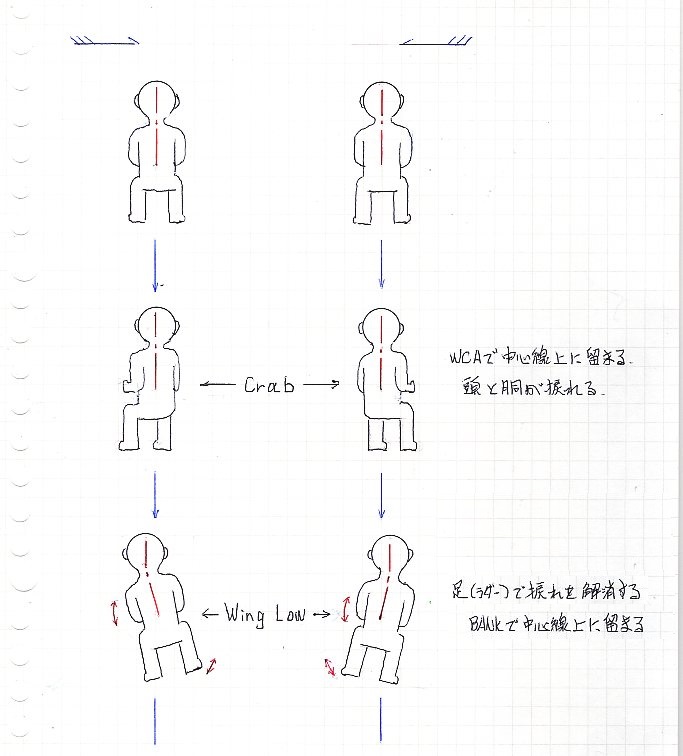 Crab
WCAで中心線上に留まる.
頭と胴が捩れる.
Wing Low
足(ラダー)で捩れを解消する
BANKで中心線上に留まる